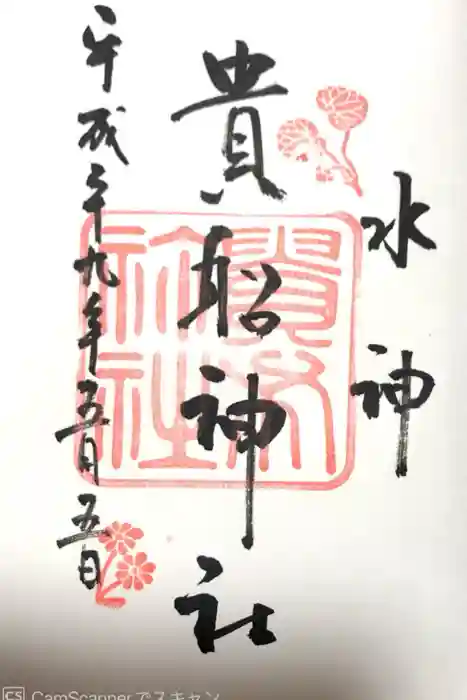 水神
貴船神社
平成二十九年五月五日
CS CamScannerでスキャン